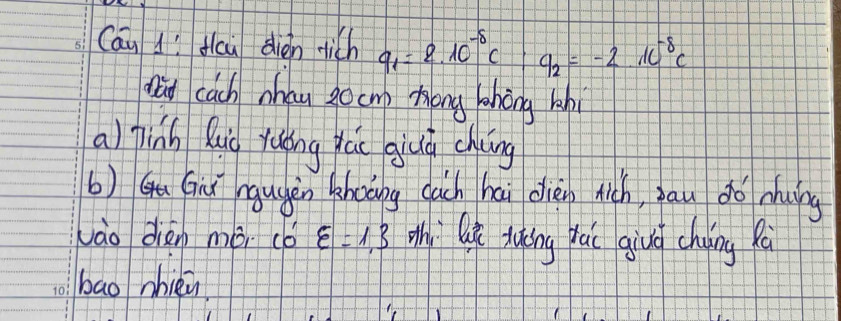 Câu 1: Hai điện tích q₁ = 2.10⁻⁸C ; q₂ = -2.10⁻⁸C
cách nhau 20cm trong không khí
a) Tính lực tương tác giữa chúng
b) Giữ nguyên khoảng cách hai điện tích, sau đó nhúng
vào điện môi có ε = 1,3 thì lực tương tác giữa chúng là
bao nhiêu.
5
10